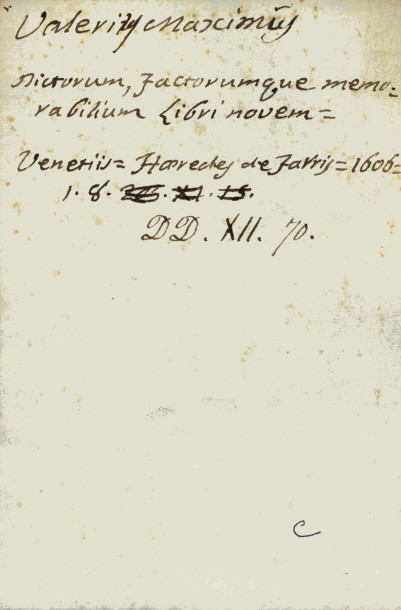 Valerius Maximus
Dictorum, factorumque memo-
rabilium Libri novem =
Venetiis = Haeredes de Farris = 1606 =
1. 8. XI. 15.
DD. XII. 70.
C